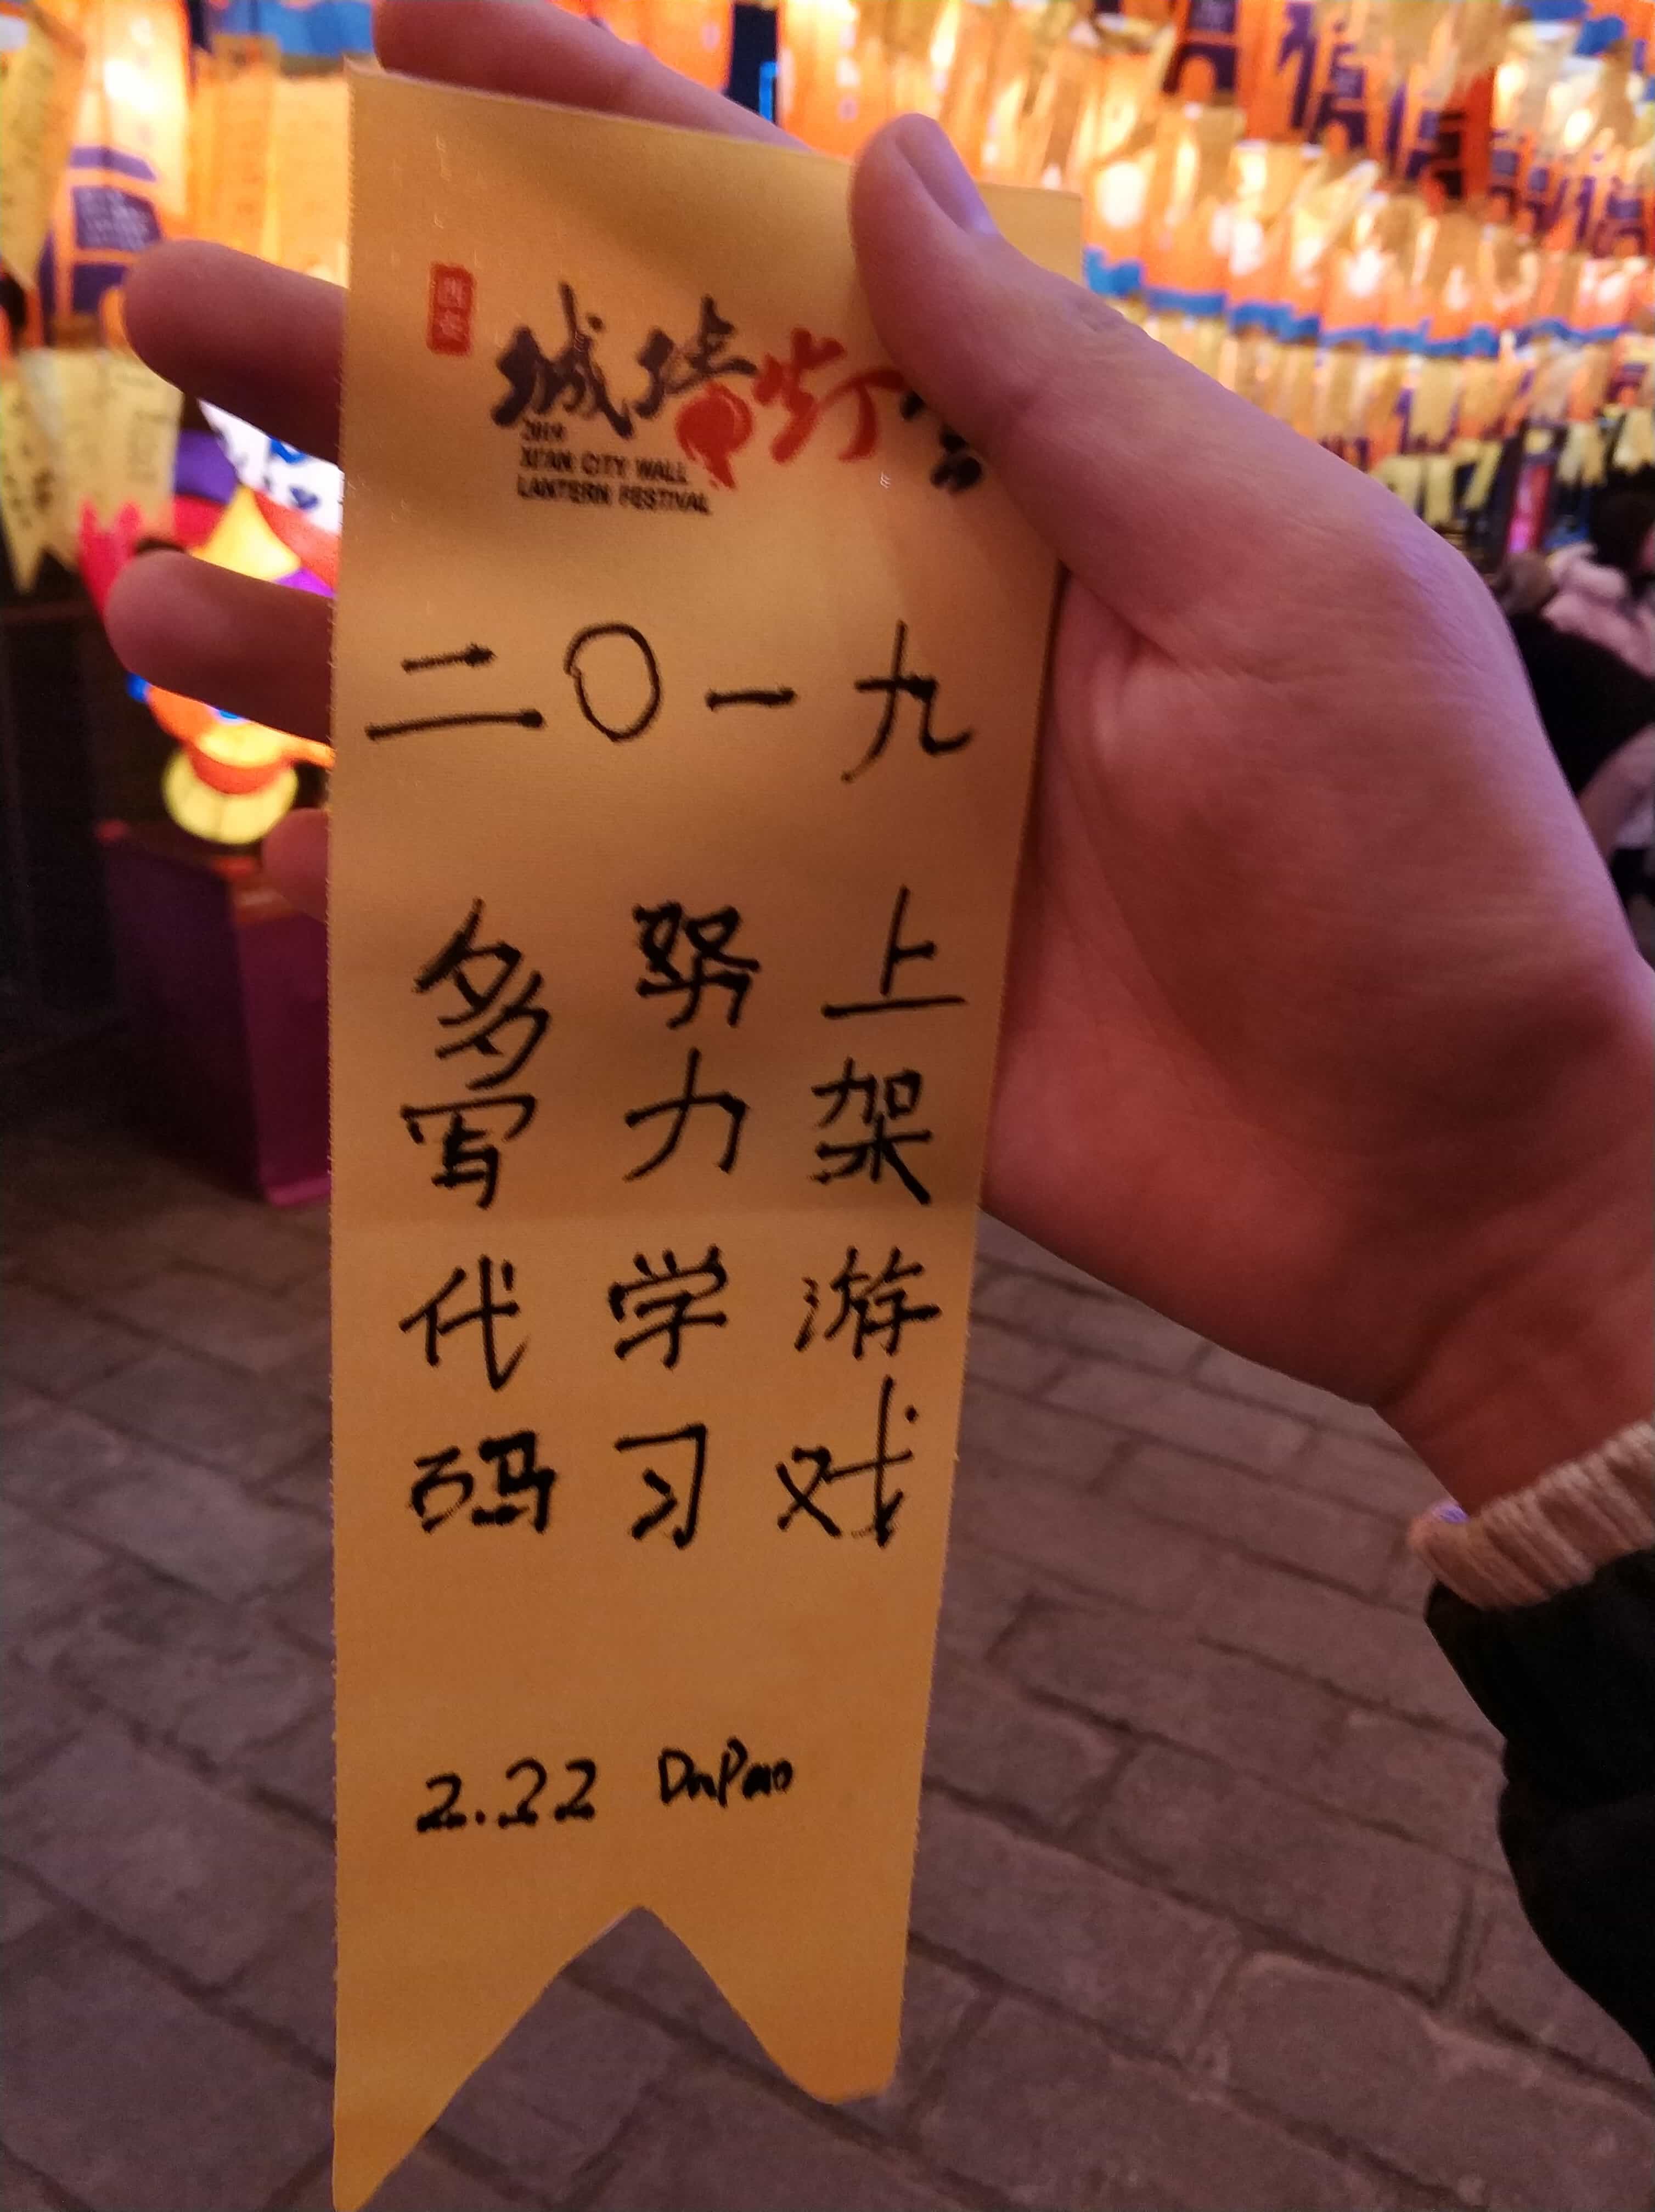 西安
城墙灯
2019
XI'AN CITY WALL
LANTERN FESTIVAL
二〇一九
上架游戏
努力学习
多写代码
2.22 DaPao